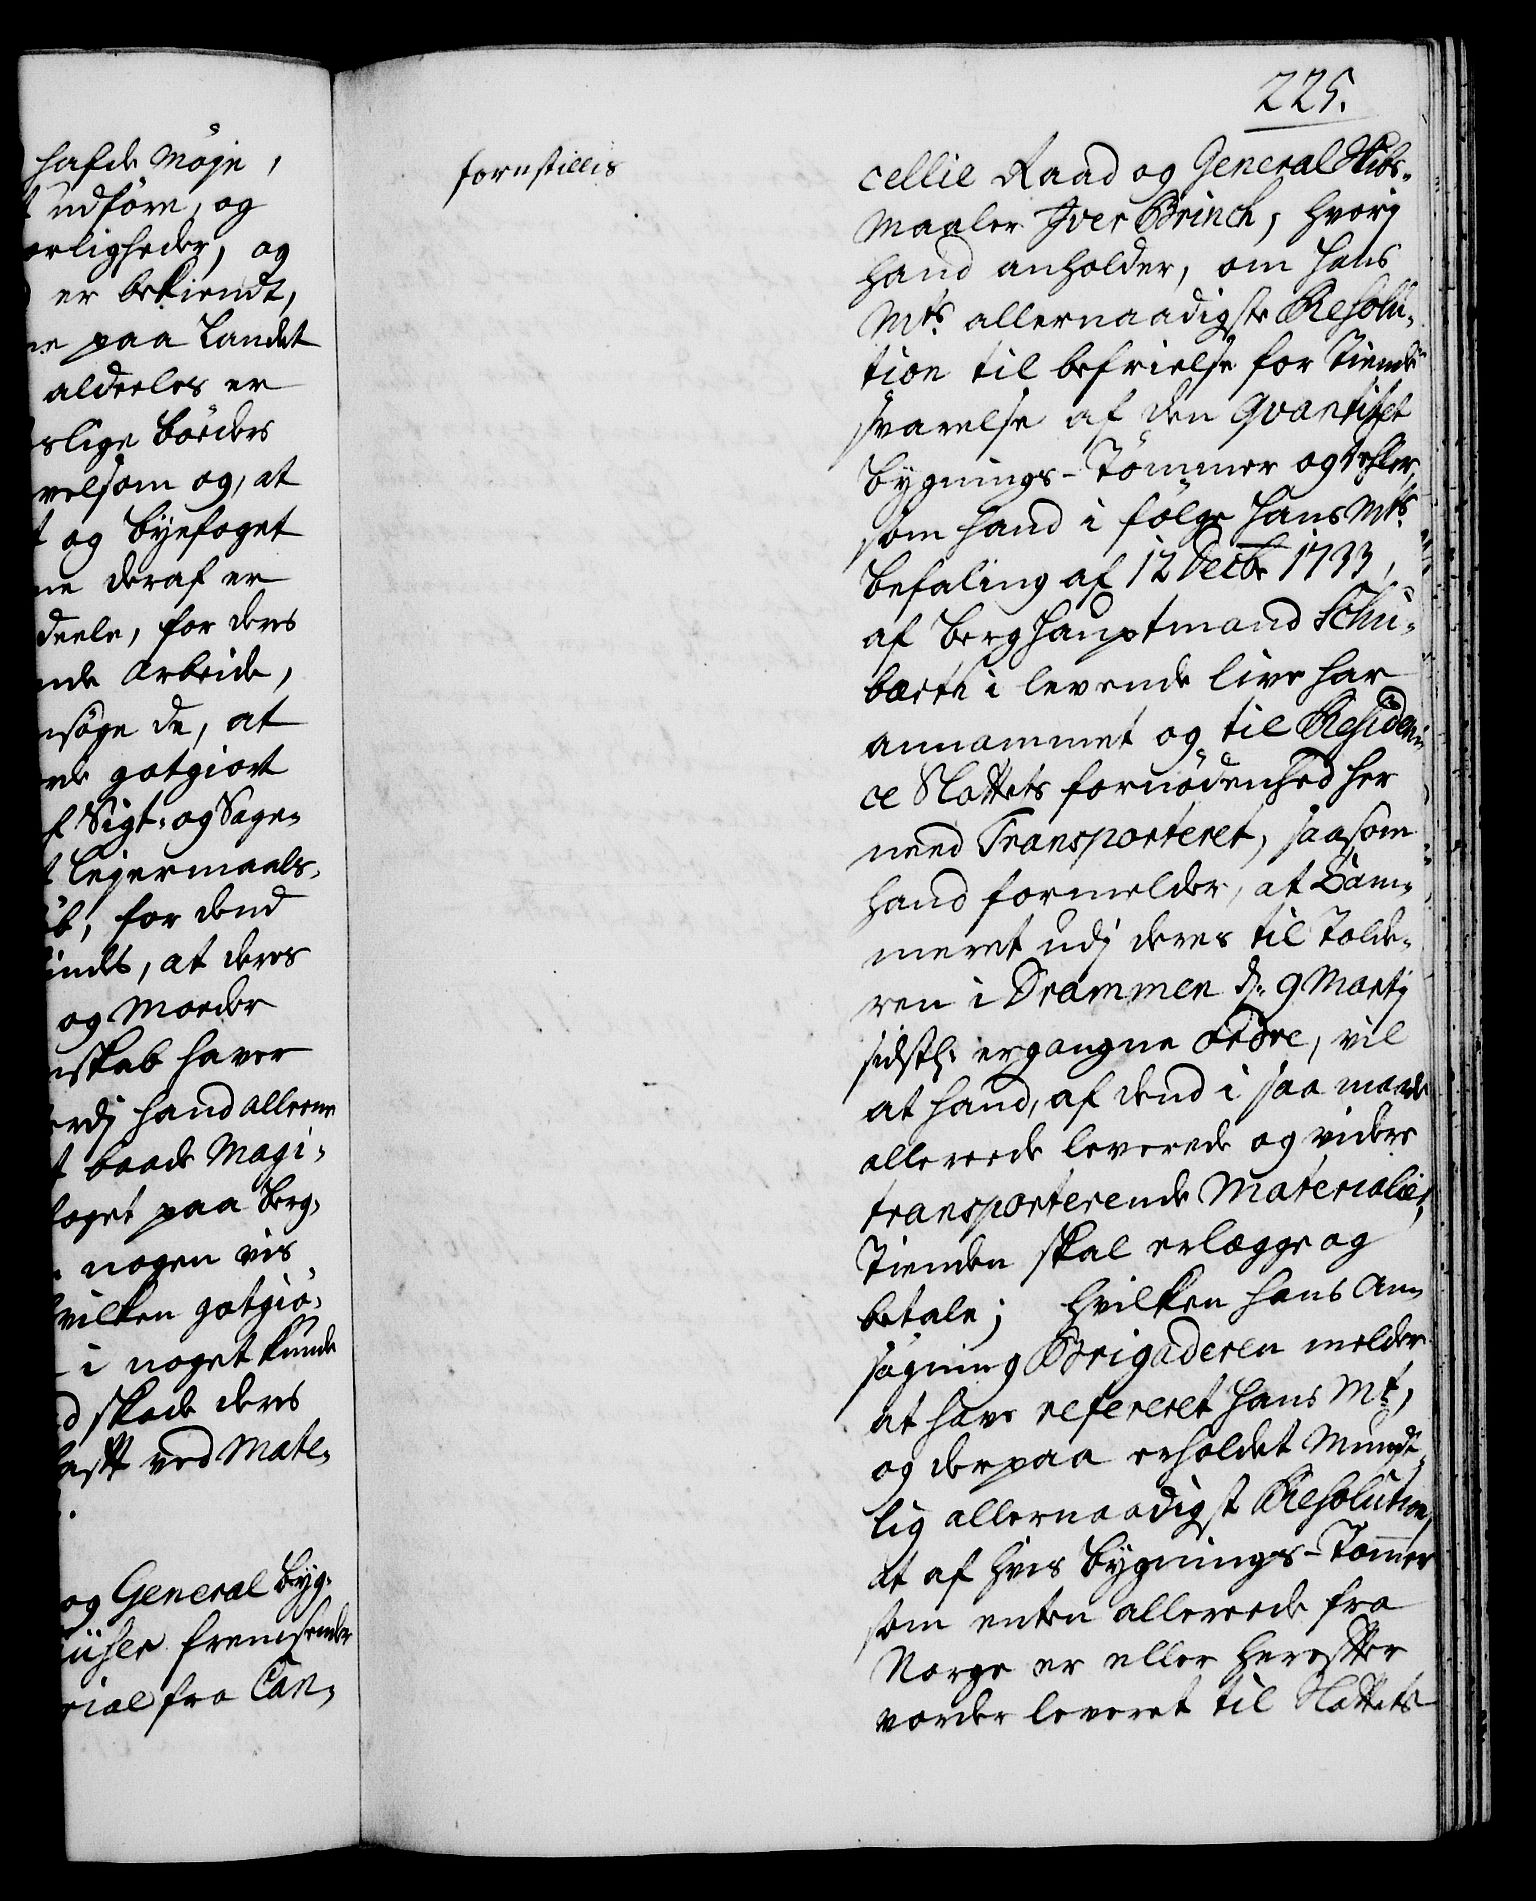 hafde Møje,
udføre, og
erligheder, og
er bekiendt,
paa Landet
aldeeles er
slige bøeders
velsom og, at
og byefoget
ne deraf er
deele, for deres
nde Arbeide,
nsøge de, at
gotgiort
Sigt- og Sage-
Lejermaals-
for dend
at deres
og Moeder
skab haver
hand alleene
baade Magi-
foget paa Berg-
nogen vis
vilken gotgiø-
i noget kunde
skade deres
ved Mate-
og General Byg-
fremsender
rial fra Can-
225.
forestillis
cellie Raad og General Skibs-
Maaler Iver Brinch, hvorj
hand anholder, om Hans
Mts. allernaadigste Resolu-
tion til befrielse for Tiende
svarelse af den Qvantitet
bygnings-Tømmer og Dehler,
som hand i følge Hans Mts.
befaling af 12 Decbr 1733,
af Berghauptmand Schu-
bart i levende live har
annammet og til Residen-
ce Slottets fornødenhed her
need Transporteret, saasom
hand formelder, at Cam-
meret udj deres til Tolde-
ren i Drammen d. 9 Martj
sidstl. ergangne Ordre, vil
at hand, af dend i saa maade
allereede leverede og videre
transporterende Materialier,
Tienden skal erlægge og
betale; Hvilken hans An-
søgning Brigaderen melder
at have refereret Hans Mt,
og derpaa erholdet Mundt-
lig allernaadigst Resolution,
at af hvis bygnings-Tømmer
som enten allereede fra
Norge er eller herefter
vorder leveret til Slottets